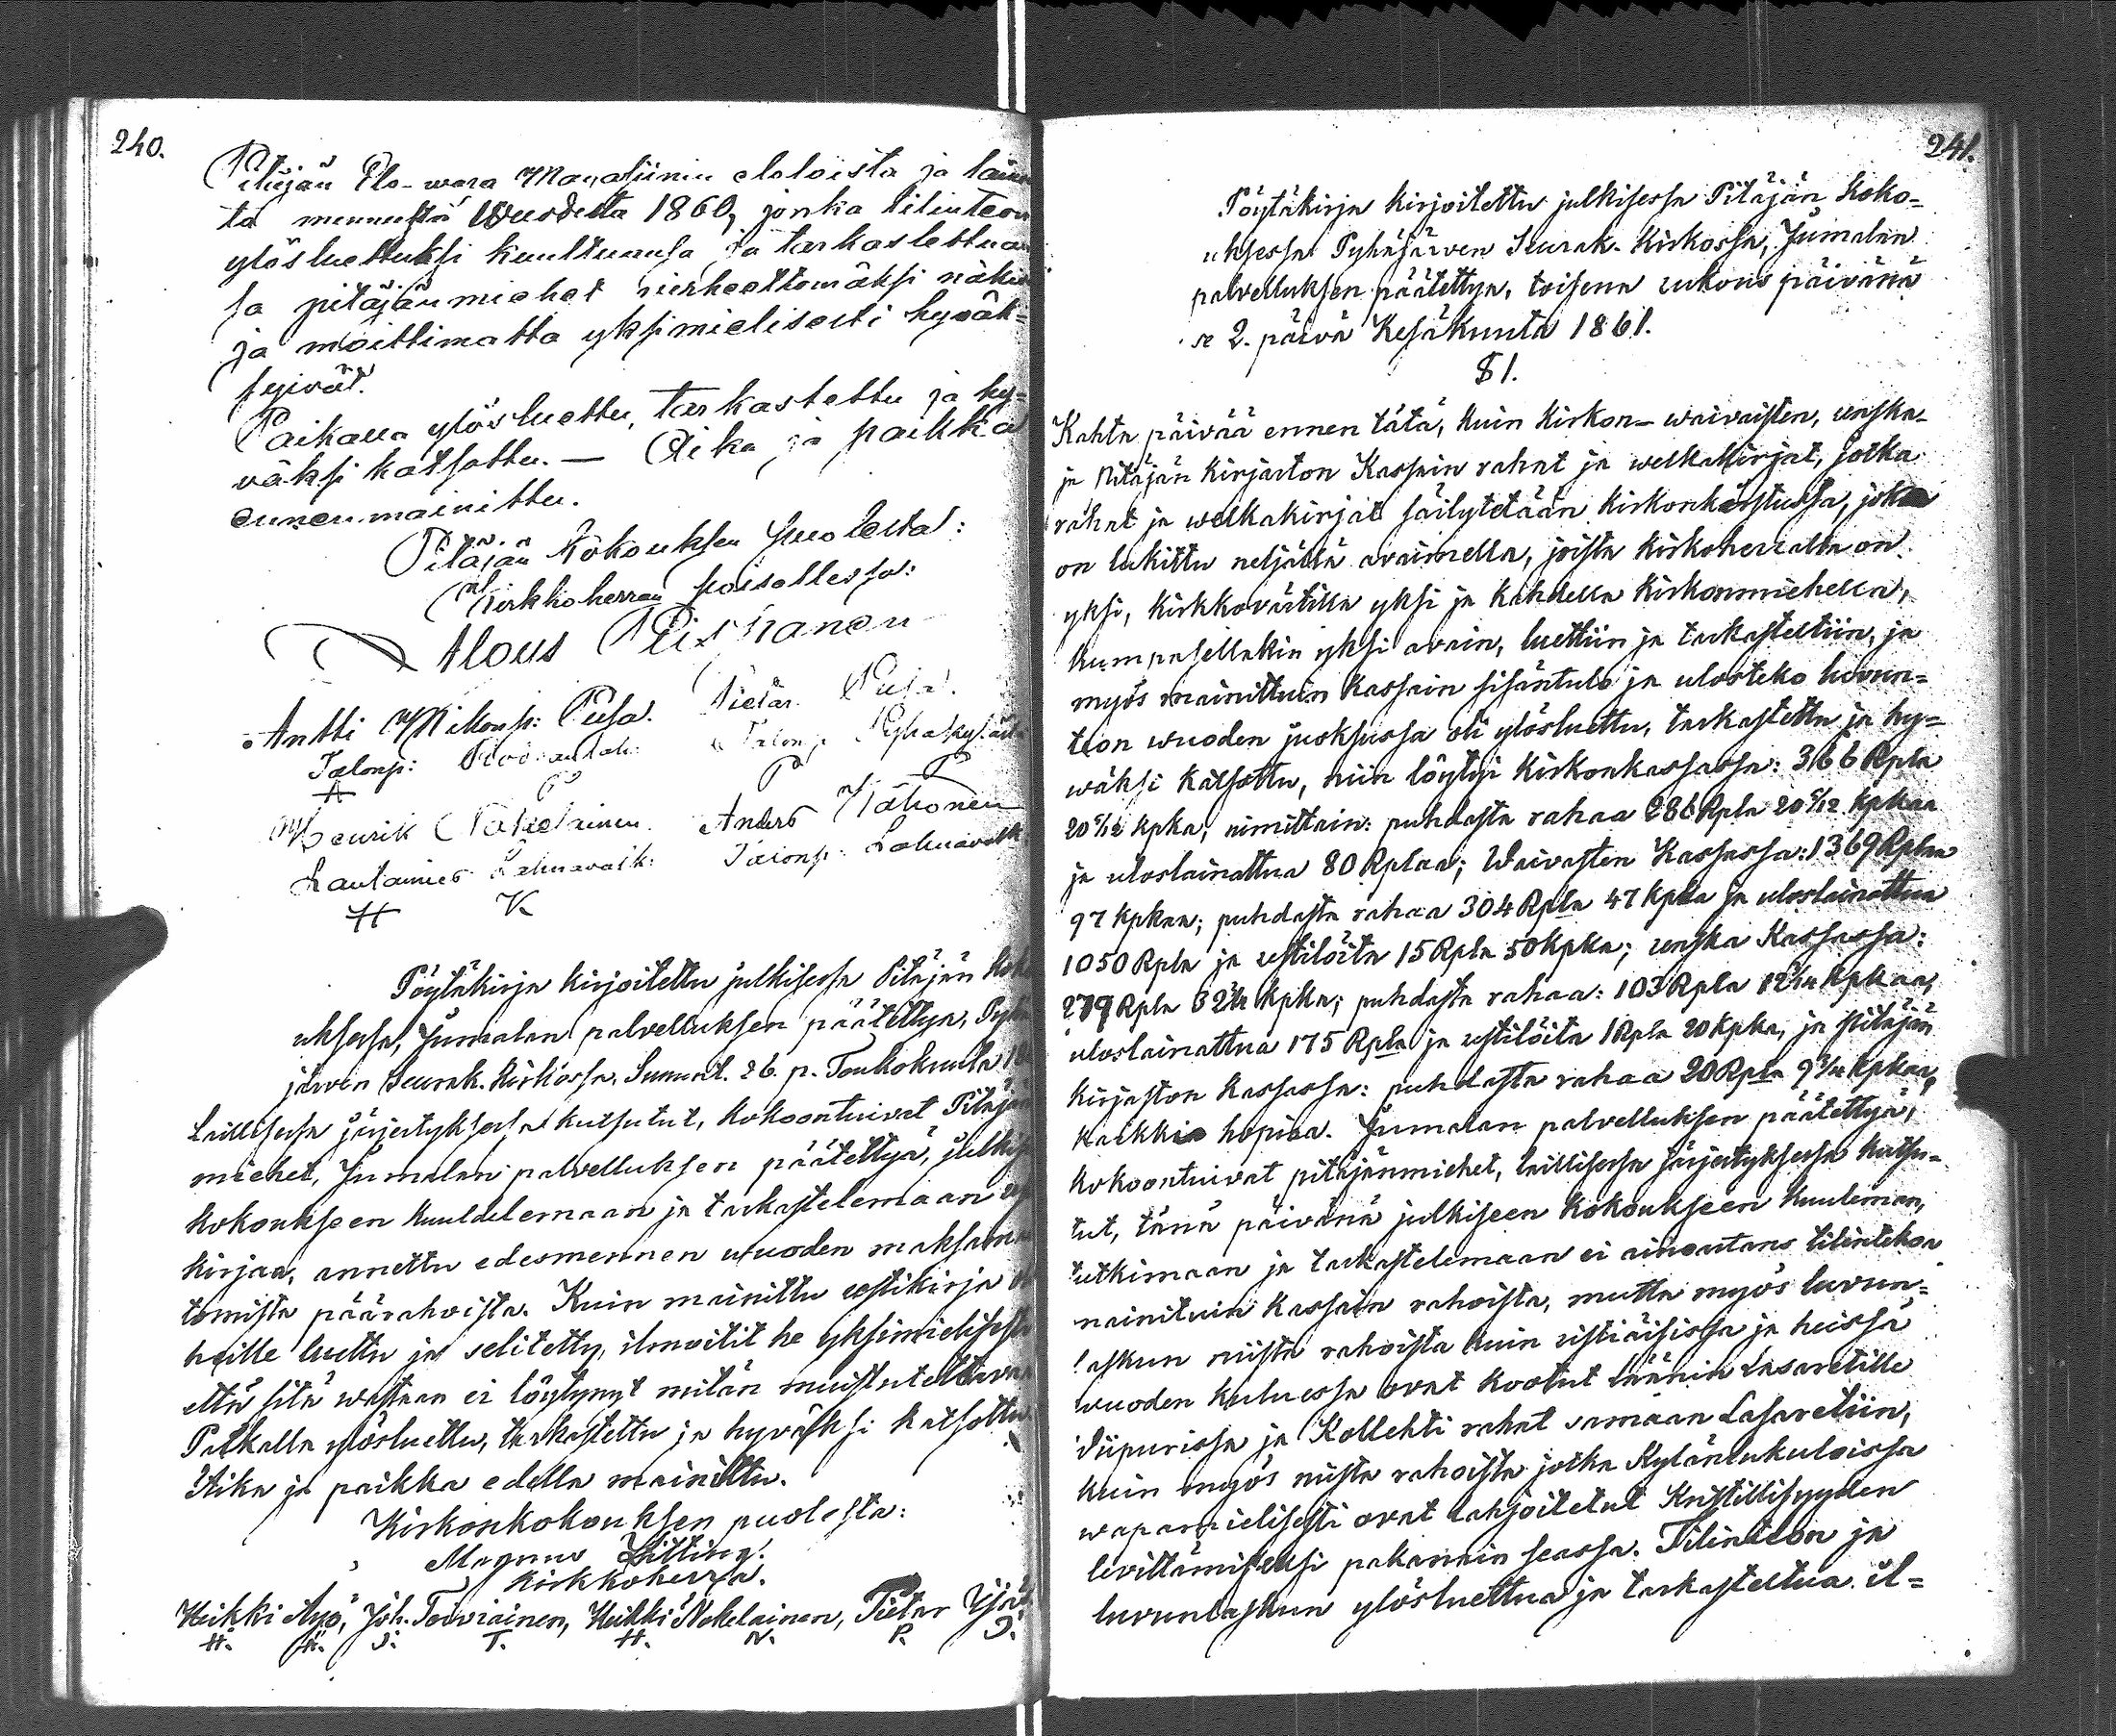 240.
Pitäjän Elo-wara Magasiinin eloloista ja lain
ta mennestä Wuodesta 1860, jonka tilinteon
ylösluetuksi kuultuansa ja tarkastettua
sa pitäjänmiehet virheettomäksi näki
ja moittimatta yksimielisesti hyväk=
syivät.
Paikalla ylösluettu, tarkastettu ja hy=
väksi katsottu. — Aika ja paikka
ennenmainittu.
Pitäjän Kokouksen puolesta:
Kirkkoherran poisollessa:
Alous
Antti Mikonp: Pusa. Pietar. Pusa.
Talonp: Talonp
A P P P
Henrik Nakelainen. Anders Kähönen
Lautamies Lahnavaik: Talonp: Lahnavalk
H K
Pöytäkirja kirjoitettu julkisessa Pitäjän Kok
uksessa, Jumalan palvelluksen päätettya, Pyhä
järven Seurak. Kirkossa, Sununt. 26. p. Toukokuuta 18
Laillisessa järjestyksessä kutsutut, kokoontuivat Pitäjän
miehet, Jumalan palvelluksen päätettyä, julkis
kokoukseen kuuldelemaan ja tarkastelemaan
kirjaa, annettu edesmennen wuoden maksama
tomista päärahoista. Kuin mainittu restikirja ol
heille luettu ja selitetty, ilmoitit he yksimielisesti
että sitä wastaan ei löytynyt mitän muistutettava
Paikalla ylösluettu, tarkastettu ja hyväksi katsottu
Aika ja paikka edellä mainittu.
Kirkonkokouksen puolesta:
Magnus
Kirkkoherra.
Heikki Äyö, Joh. Toiviainen, Heikki Nokelainen, Pietar
H. Ä. J. T. H. N. P.
241.
Pöytäkirja kirjoitettu julkisessa Pitäjän Koko=
uksessa Pyhäjärven Seurak. Kirkossa, Jumalan
palvelluksen päätettya, toisena rukous päivänä
se 2. päivä Kesäkuuta 1861.
§ 1.
Kahta päivää ennen tätä, kuin Kirkon- waivaisten, ruska-
ja Pitäjän Kirjaston Kassain rahat ja welkakirjat, jotka
rahat ja welkakirjat säilytetään Kirkonkirstussa, joka
on lukittu neljällä avaimella, joista Kirkoherralla on
yksi, kirkkovärtilla yksi ja kahdella Kirkonmiehella,
kumpasellakin yksi avain, luettiin ja tarkasteltiin, ja
myös mainittuin Kassain sisäntulo ja ulosteko luvun=
teon wuoden juoksussa oli ylösluettu, tarkastettu ja hy=
wäksi katsottu, niin löytyi Kirkonkassassa: 366 Rpla
20 5/12 kpka, nimittain: puhdasta rahaa 286 Rpla 20 5/12 kpkaa
ja uloslainattua 80 Rplaa; Waivasten Kassassa: 1369 Rplaa
97 kpkaa; puhdasta rahaa 304 Rpla 47 kpka ja uloslainattua
1050 Rpla ja restilöitä 15 Rpla 50 kpka; ruska Kassassa:
279 Rpla 32 1/4 kpka; puhdasta rahaa: 103 Rpla 12 1/4 kpkaa,
uloslainattua 175 Rpla ja restilöita 1 Rpla 20 kpka, ja Pitäjän
kirjaston kassassa: puhdasta rahaa 20 Rpla 9 3/4 kpkaa,
kaikkia hopiaa. Jumalan palvelluksen päätettyä,
kokoontuivat pitäjänmiehet, laillisessa järjestyksessä kutsu=
tut, tänä päivänä julkiseen kokoukseen kuuleman,
tutkimaan ja tarkastelemaan ei ainoastans tilintekoa
mainituin kassain rahoista, mutta myös luvun=
laskun niistä rahoista kuin ristiäisissä ja heissä
wuoden kuluessa ovat kootut läänin Lasaretille
Viipurissa ja Kollehti rahat samaan Lasaretiin,
kuin myös niista rahoista jotka Kylänlukuloissa
wapamielisesti ovat lahjoitetut Kristillisyyden
levittämiseksi pakanain seassa. Tilinteon ja
luvunlaskun ylösluettua ja tarkasteltua il=